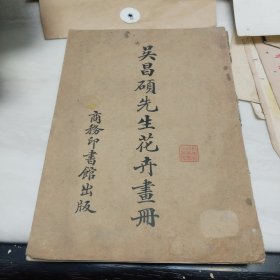 吴昌碩先生花卉畫冊
商務印書館出版